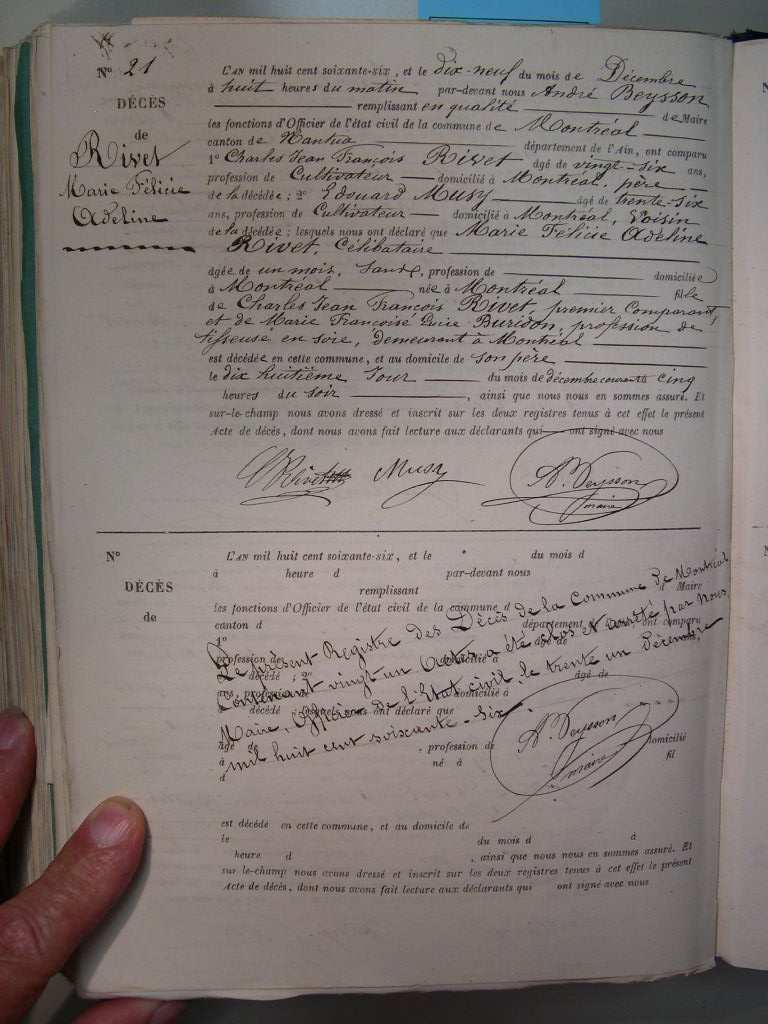 N° 21
DÉCÈS
de
Rivet
Marie Félicie
Adeline
L'AN mil huit cent soixante-six, et le dix-neuf du mois de Décembre
à huit heures du matin par-devant nous André Beysson
remplissant en qualité de Maire
les fonctions d'Officier de l'état civil de la commune de Montréal
canton de Nantua département de l'Ain, ont comparu
1° Charles Jean François Rivet âgé de vingt-six ans,
profession de Cultivateur domicilié à Montréal, père
de la décédée; 2° Edouard Musy âgé de trente-six
ans, profession de Cultivateur domicilié à Montréal, Voisin
de la décédée; lesquels nous ont déclaré que Marie Félicie Adeline
Rivet, Célibataire
âgée de un mois, sans, profession de domiciliée
à Montréal née à Montréal fille
de Charles Jean François Rivet, premier Comparant,
et de Marie Françoise Buridon, profession de
tisseuse en soie, demeurant à Montréal
est décédée en cette commune, et au domicile de son père
le dix huitième jour du mois de décembre courant à cinq
heures du soir, ainsi que nous nous en sommes assuré. Et
sur-le-champ nous avons dressé et inscrit sur les deux registres tenus à cet effet le présent
Acte de décès, dont nous avons fait lecture aux déclarants qui ont signé avec nous
Rivet Musy A. Beysson
maire
N°
DÉCÈS
de
L'AN mil huit cent soixante-six, et le du mois d
à heure d par-devant nous
remplissant d Maire
les fonctions d'Officier de l'état civil de la commune d
canton d département de l'Ain, ont comparu
1° âgé de
profession de domicilié à
décédé; 2° âgé de
ans, profession domicilié à
décédé lesquels nous ont déclaré que
âgé de , profession de domicilié
à né à fil
d
Le présent Registre des Décès de la Commune de Montréal
Contenant vingt un Actes a été clos et arrêté par Nous
Maire, Officier de l'Etat civil, le trente un Décembre
mil huit cent soixante-six.
A. Beysson
maire
est décédé en cette commune, et au domicile de
le du mois d à
heure d , ainsi que nous nous en sommes assuré. Et
sur le-champ nous avons dressé et inscrit sur les deux registres tenus à cet effet le présent
Acte de décès, dont nous avons fait lecture aux déclarants qui ont signé avec nous